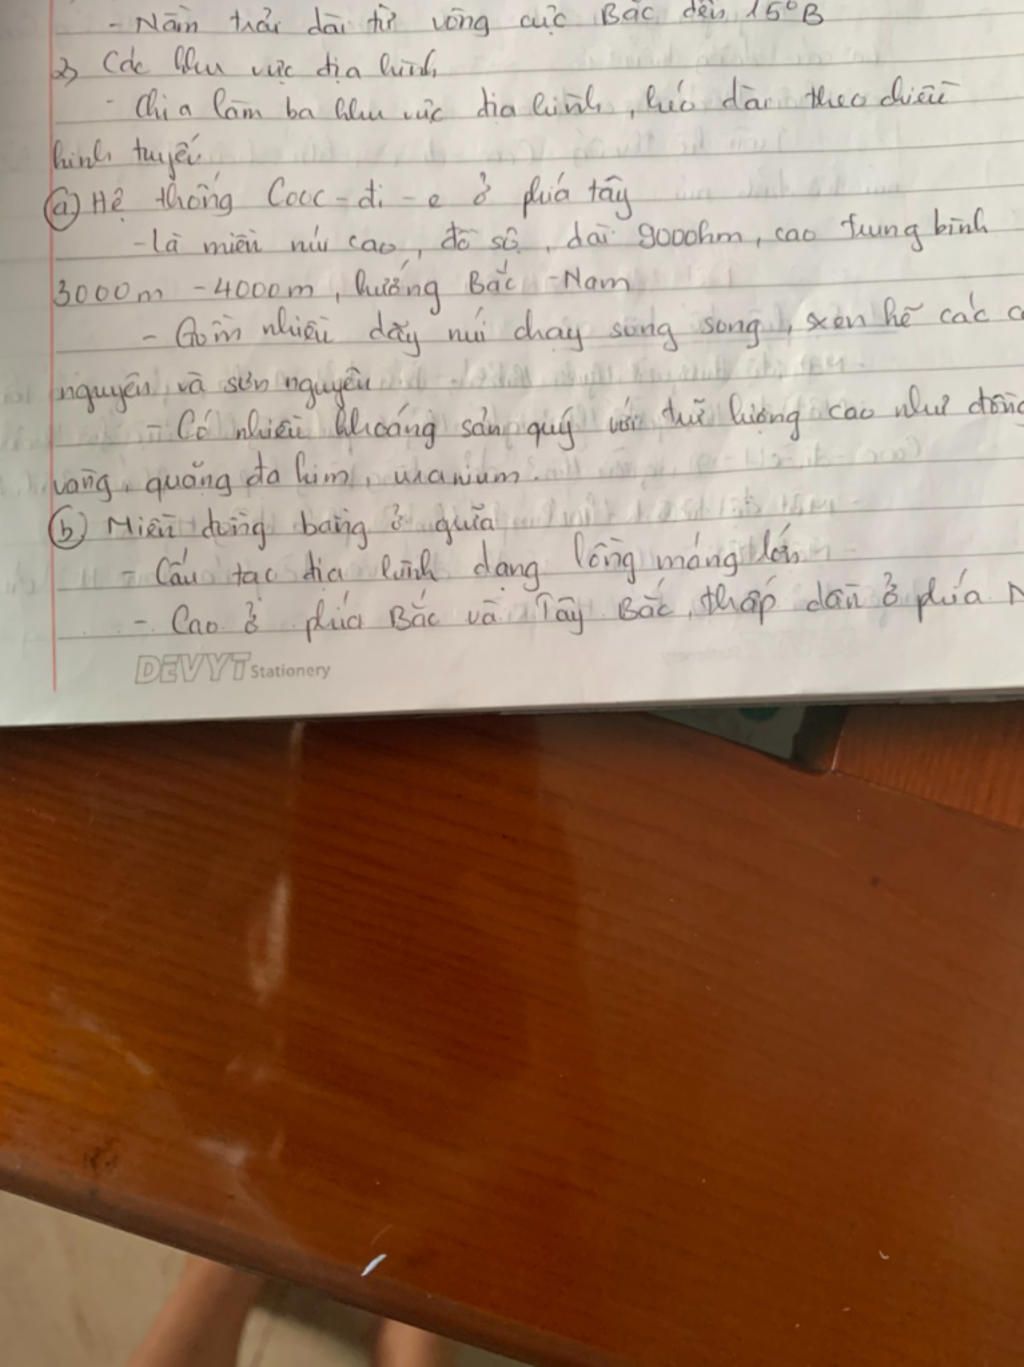 - Nằm trải dài từ vòng cực Bắc đến 15°B
2, Các khu vực địa hình
- Chia làm ba khu vực địa hình, kéo dài theo chiều
kinh tuyến
(a) Hệ thống Cooc - đi - e ở phía tây
- Là miền núi cao, đồ sộ, dài 9000km, cao trung bình
3000m - 4000m, hướng Bắc - Nam
- Gồm nhiều dãy núi chạy song song, xen kẽ các
nguyên và sơn nguyên
- Có nhiều khoáng sản quý với trữ lượng cao như đồng
vàng, quặng đa kim, uranium.
(b) Miền đồng bằng ở giữa
- Cấu tạo địa hình dạng lòng máng lớn
- Cao ở phía Bắc và Tây Bắc, thấp dần ở phía N
DEVYT Stationery